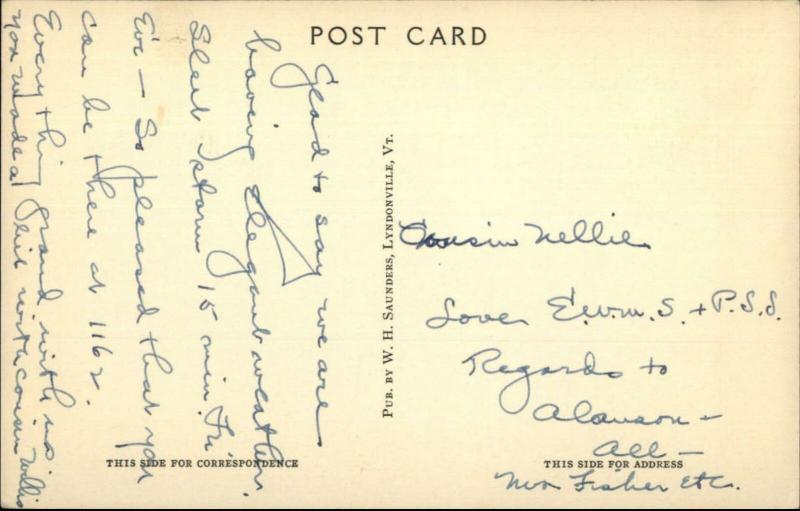 POST CARD
Glad to say we are
having elegant weather.
Sleet storm 15 min. Fri
Eve - So pleased that you
can be there at 1162.
Everything grand with us
you made a hit with cousin Willis
THIS SIDE FOR CORRESPONDENCE
PUB. BY W. H. SAUNDERS, LYNDONVILLE, VT.
Cousin Nellie
Love E.W.M.S. + P.S.S.
Regards to
Alanson -
all -
Mrs Fisher Etc.
THIS SIDE FOR ADDRESS